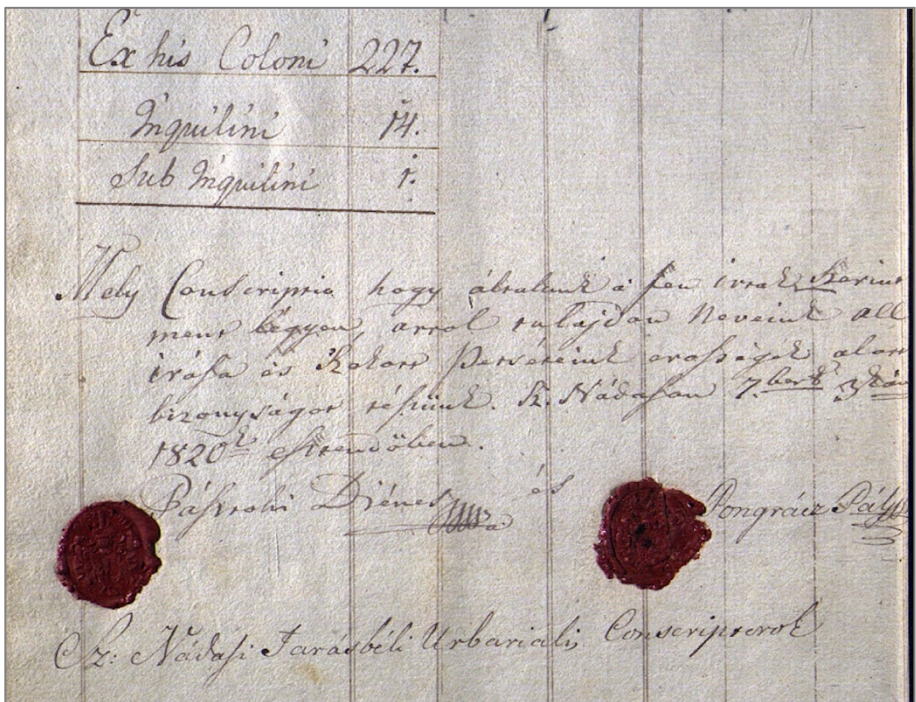 Ex his Coloni 227.
Inquilini 14.
Sub Inquilini 1.
Mely Conscriptio hogy általunk a fen irtak szerint
ment légyen, arról tulajdon Neveink all
irása és Szokott Petséteink erősségek alatt
bizonyságot tészünk. Sz. Nádason 7.berk 3kán
1820k esztendőben.
Pászthi Diénes és Pongrácz Pály
Sz: Nádasi Járásbéli Urbariális Conscriptorok